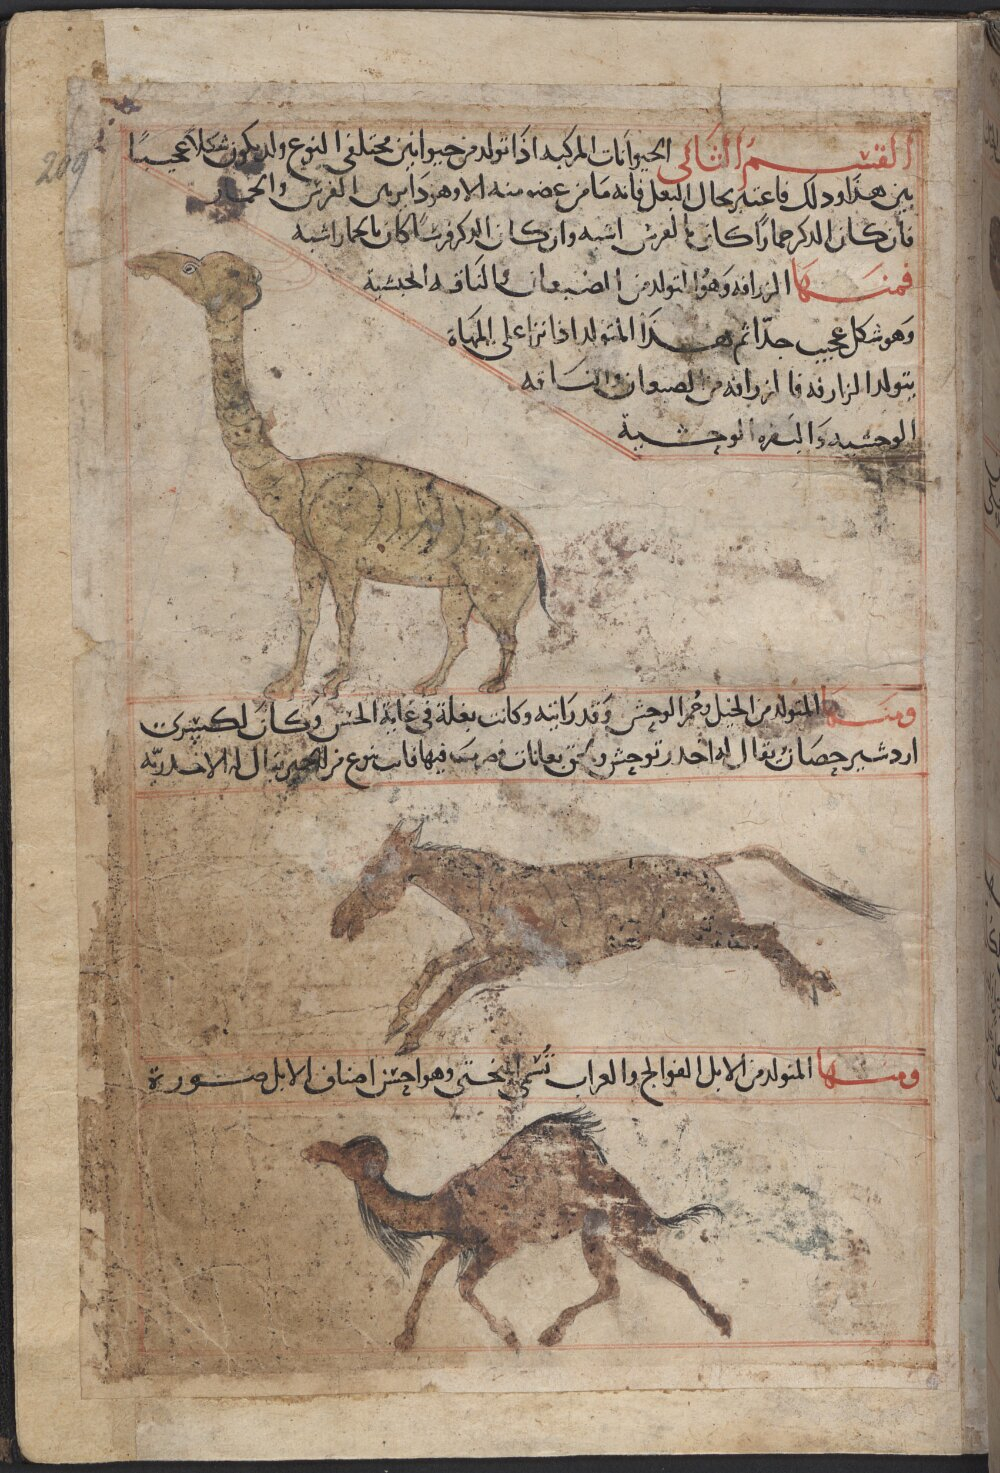 القسم الثانى الحيوانات المركبه اذا تولد من حيوانين مختلفى النوع والد يكون شكلا عجيبا
بين هذا وذلك فاعتبر بحال البغل فانه ما من عضو منه الا وهو دابر بين الفرس والحمار
فان كان الذكر حمارا كان بالفرس اشبه وان كان الذكر فرسا كان بالحمار اشبه
فمنها الزرافه وهو المتولد من الضبعان والناقه الحبشية
وهو شكل عجيب جدا ثم هذا المتولد اذا نزا على المهاة
يتولد الزارفه فالزرافه من الضبعان والناقه
الوحشيه والبقره الوحشية
ومنها المتولد من الخيل وحمر الوحش وقد رايته وكانت بغلة فى غاية الحسن وكان لكسرى
اردشير حصان يقال له اخدر توحش و بعانات فيها نوع من الحمير يقال له الاخدريه
ومنها المتولد من الابل الفوالج والعراب تسمى البختى وهو احسن اصناف الابل صورة
209